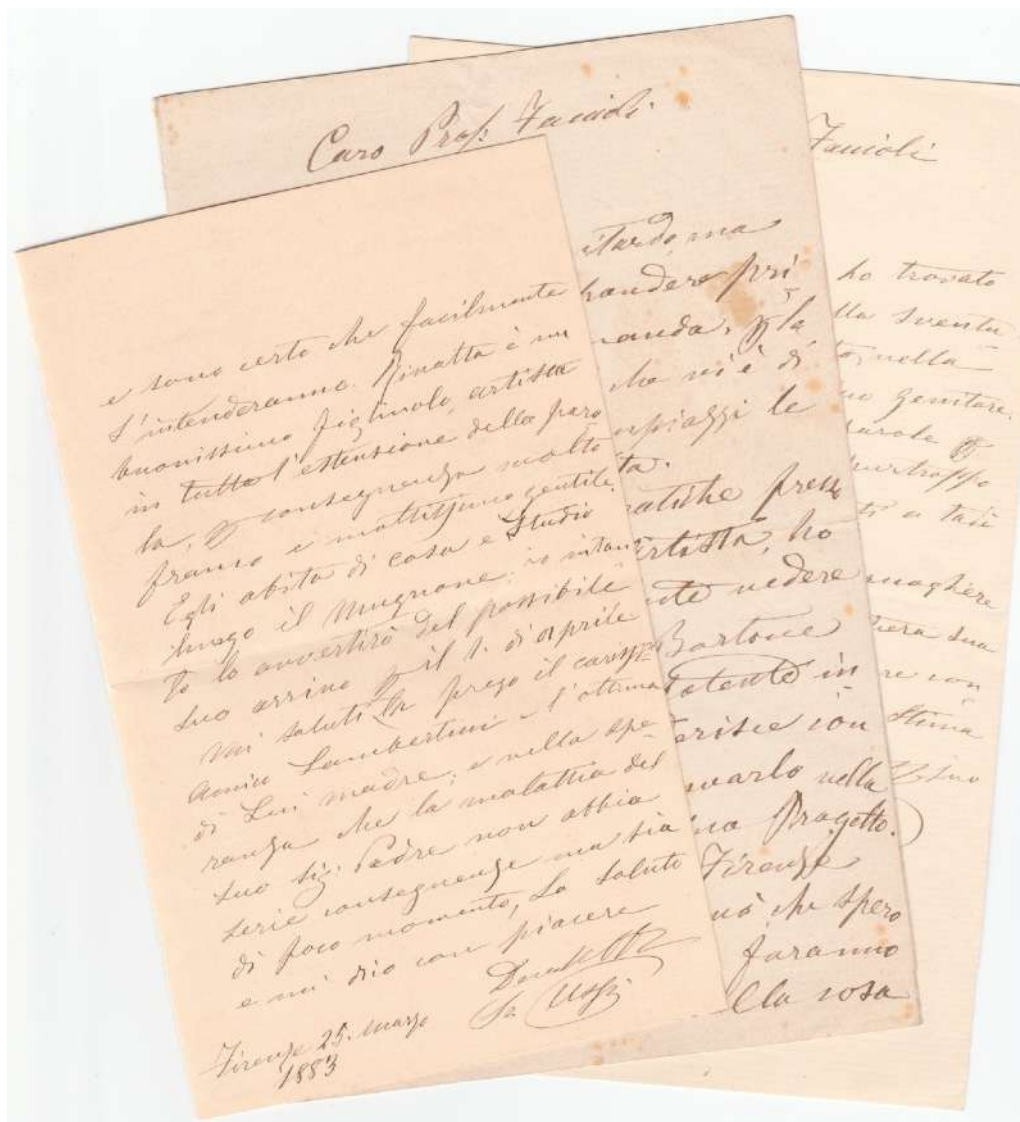 e sono certo che facilmente
s'intenderanno. Rivalta è un
buonissimo figliuolo, artista
in tutta l'estensione della paro
la, e p conseguenza molto
franco e moltissimo gentile.
Egli abita di casa e Studio
lungo il Mugnone; io intan
to lo avvertirò del possibile
suo arrivo p il 1. di Aprile
Mi saluti la prego il cariss.
amico Lambertini e l'ottima
di Lui madre; e nella spe-
ranza che la malattia del
suo sig. Padre non abbia
serie conseguenze ma sia
di poco momento, La saluto
e mi dico con piacere
S. Ussi
Firenze 25. Marzo
1883
Caro Prof. Faccioli
itardo, ma
pri-
manda, p la
che vi è di
le
ta.
ratiche presso
artista, ho
nte vedere
Bartone
potente in
erisce con
varlo nella
Progetto.
Firenze
che spero
faranno
lla cosa
Faccioli
ho trovato
lla sventu
to, nella
uo genitore.
parole p
purtroppo
ti a tali
sua
re con
Stima
Suo